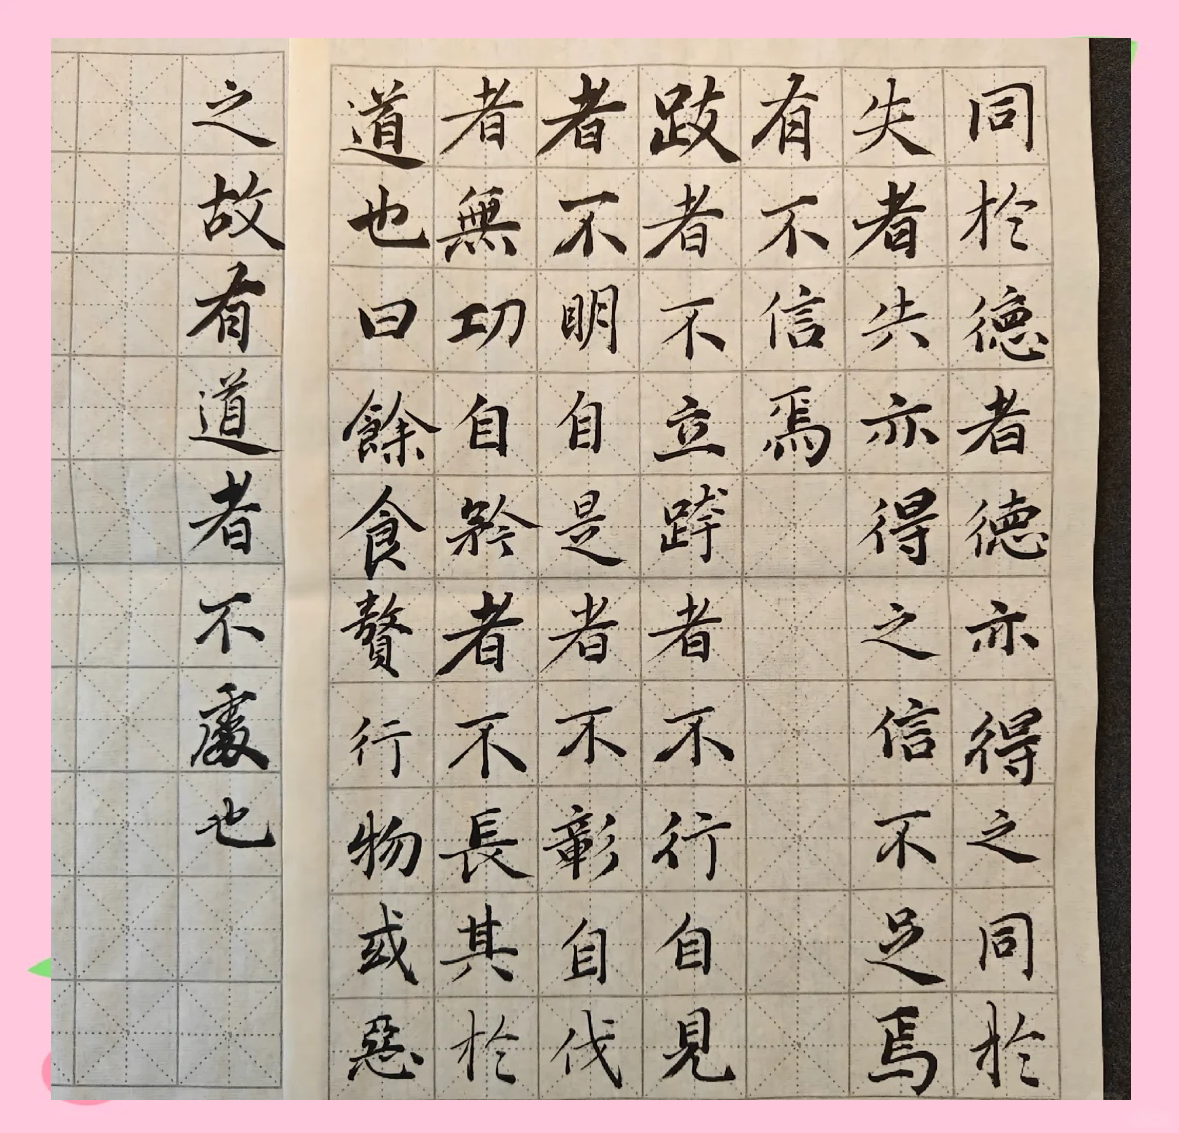 同於德者德亦得之同於
失者失亦得之信不足焉
有不信焉
跂者不立跨者不行自見
者不明自是者不彰自伐
者無功自矜者不長其於
道也曰餘食贅行物或惡
之故有道者不處也